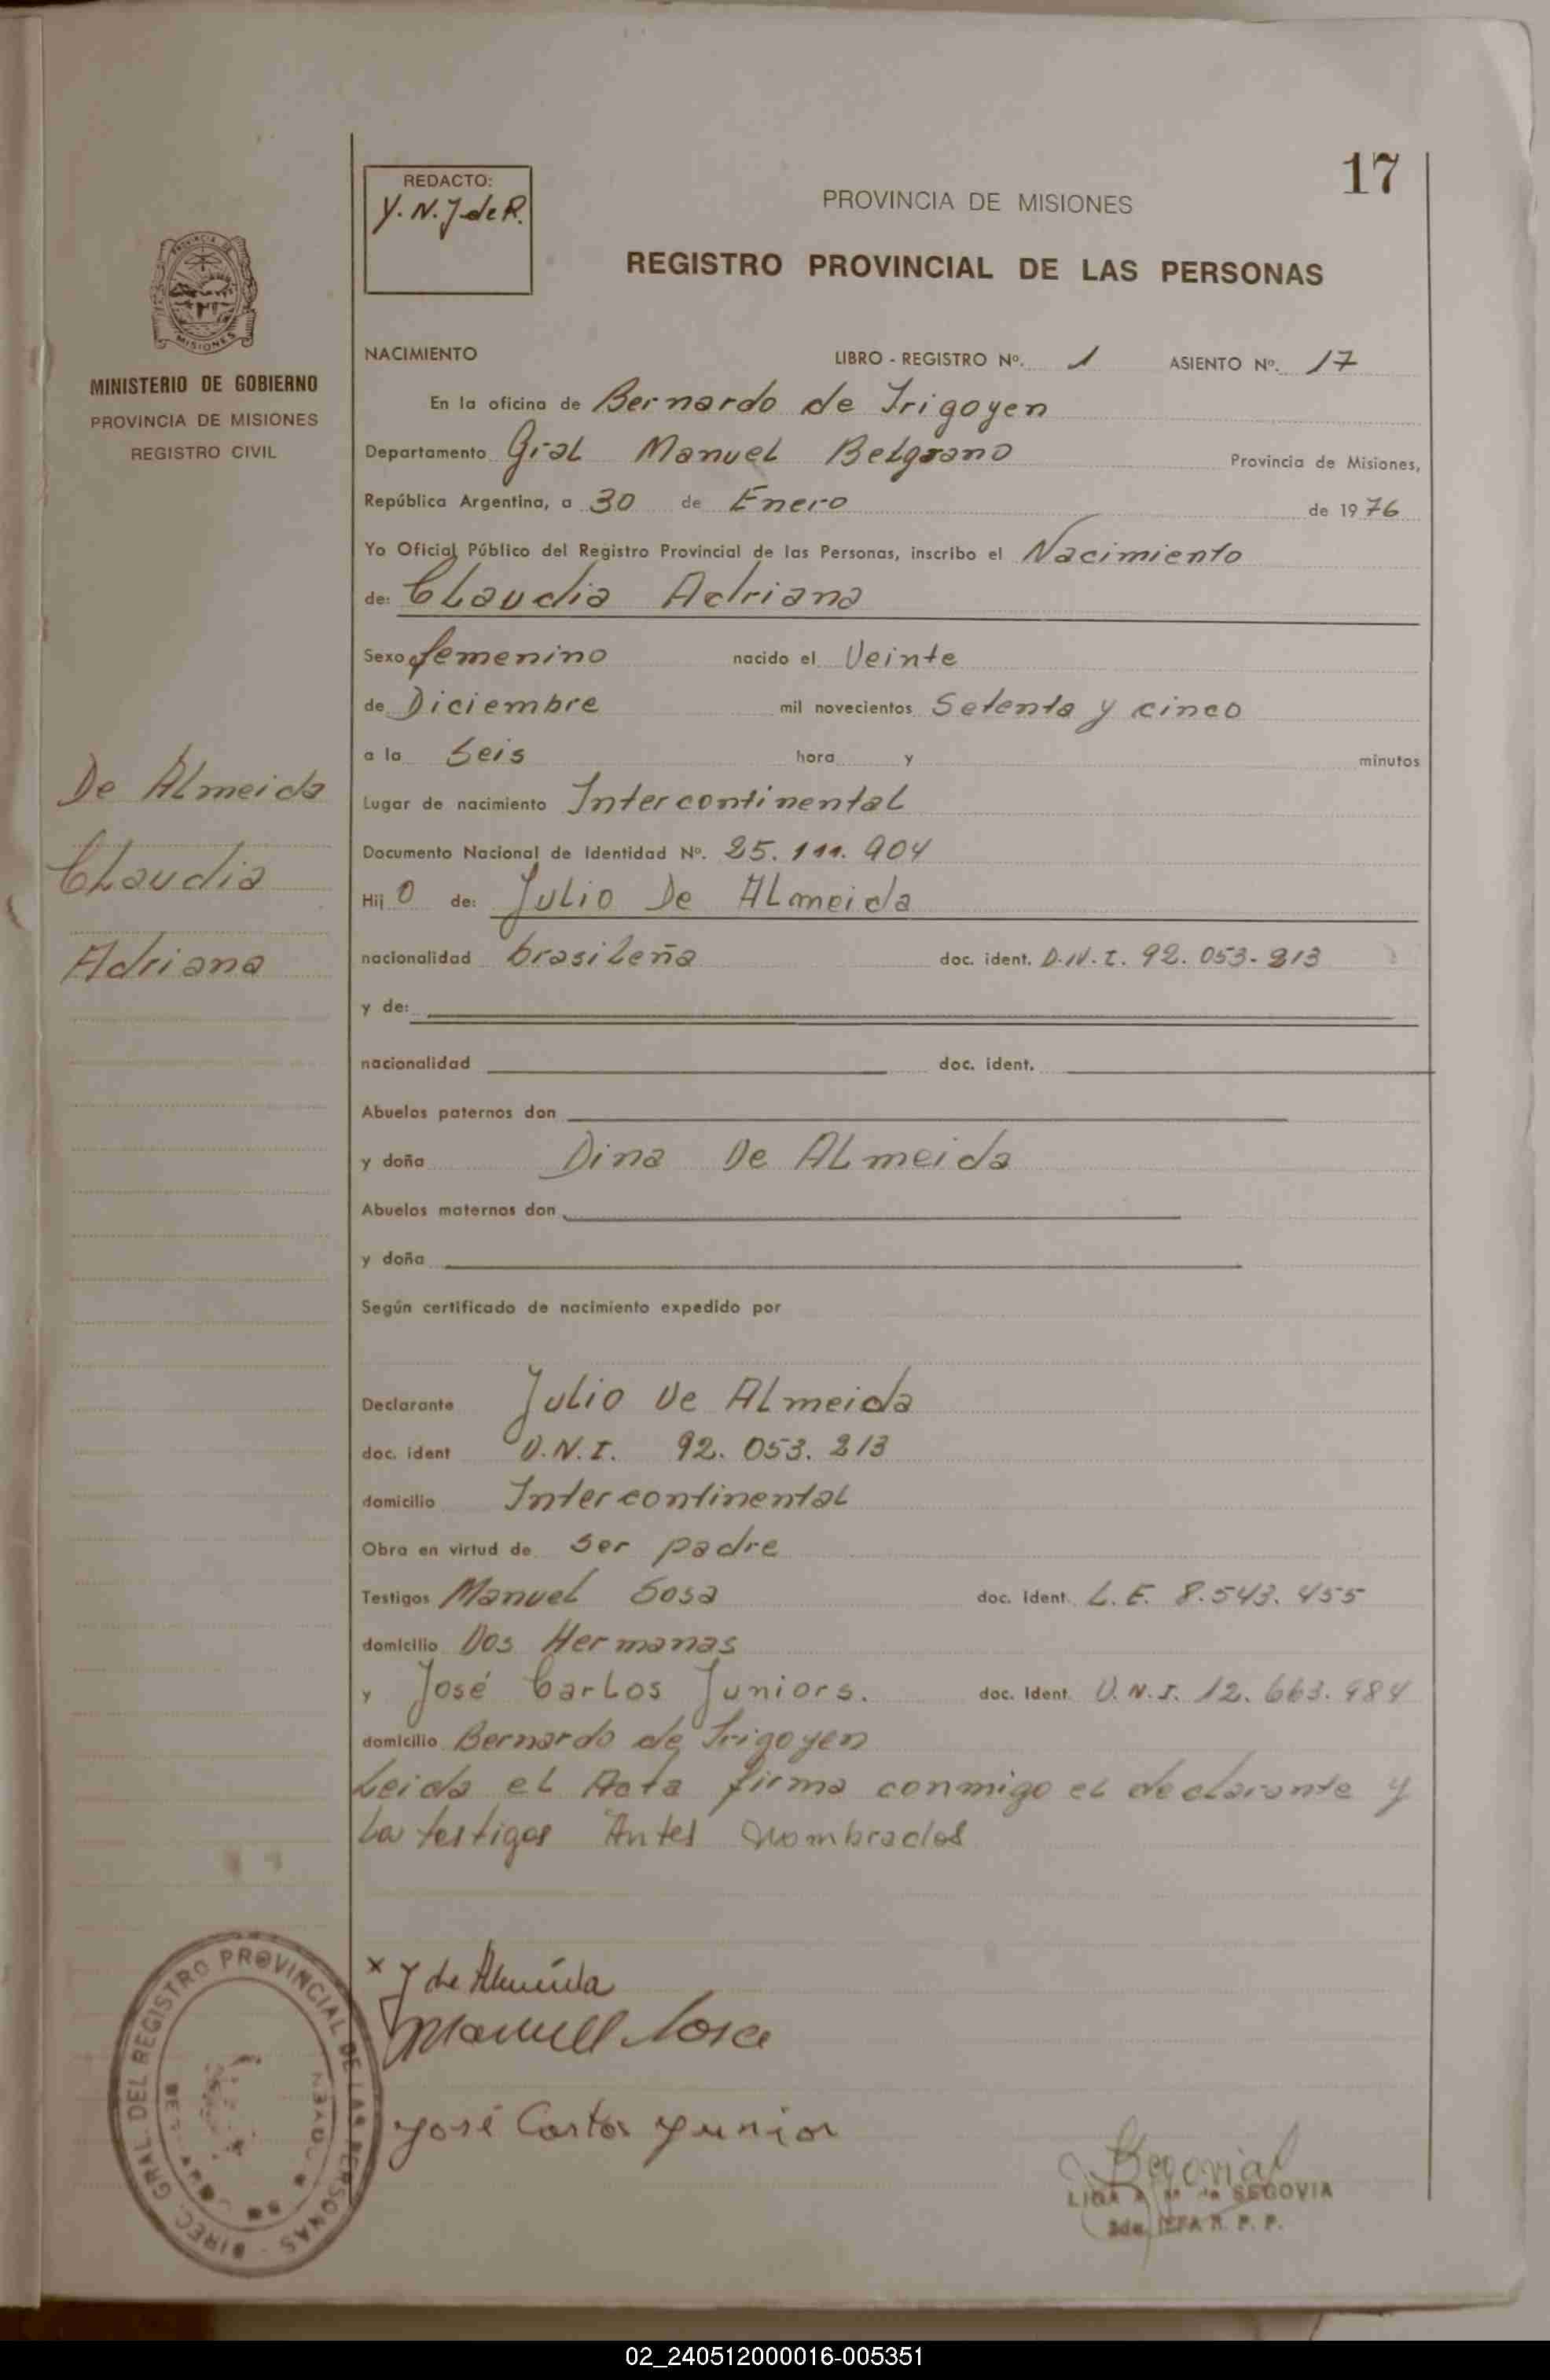 17
REDACTO:
Y. N. J de R.
PROVINCIA DE MISIONES
REGISTRO PROVINCIAL DE LAS PERSONAS
MISIONES
MINISTERIO DE GOBIERNO
PROVINCIA DE MISIONES
REGISTRO CIVIL
NACIMIENTO LIBRO - REGISTRO Nº. 1 ASIENTO Nº. 17
En la oficina de Bernardo de Irigoyen
Departamento Gral Manuel Belgrano Provincia de Misiones,
República Argentina, a 30 de Enero de 1976
Yo Oficial Público del Registro Provincial de las Personas, inscribo el Nacimiento
de: Claudia Adriana
Sexo femenino nacido el Veinte
de Diciembre mil novecientos Setenta y cinco
a la Seis hora y minutos
De Almeida
Claudia
Adriana
Lugar de nacimiento Intercontinental
Documento Nacional de Identidad Nº. 25. 111. 904
Hij O de: Julio De Almeida
nacionalidad brasileña doc. ident. D.N.I. 92. 053. 213
y de:
nacionalidad doc. ident.
Abuelos paternos don
y doña Dina De Almeida
Abuelos maternos don
y doña
Según certificado de nacimiento expedido por
Declarante Julio De Almeida
doc. ident D.N.I. 92. 053. 213
domicilio Intercontinental
Obra en virtud de Ser padre
Testigos Manuel Sosa doc. Ident. L.E. 8.543.455
domicilio Dos Hermanas
y José Carlos Juniors. doc. Ident. D.N.I. 12.663.984
domicilio Bernardo de Irigoyen
Leida el Acta firma conmigo el declarante y
La testigos Antes Nombrados
x J de Almeida
Manuel Sosa
José Carlos Junior
DIREC. GRAL. DEL REGISTRO PROVINCIAL DE LAS PERSONAS
Segovia
LIGA de SEGOVIA
JEFA R. P. P.
02_240512000016-005351